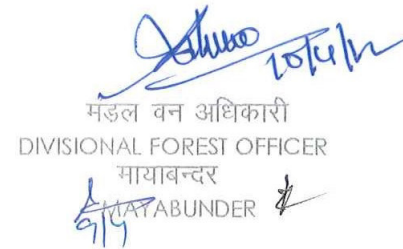 10/4/12
मंडल वन अधिकारी
DIVISIONAL FOREST OFFICER
मायाबन्दर
MAYABUNDER
9/4